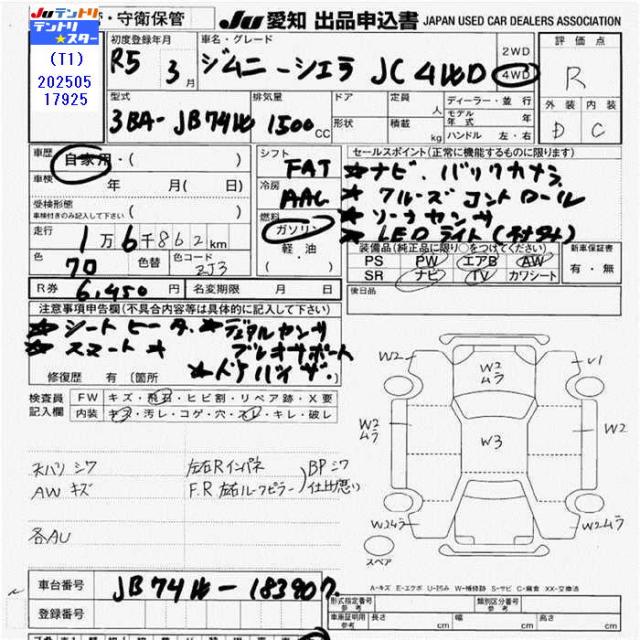 Juテントリ 守衛保管 Ju 愛知 出品申込書 JAPAN USED CAR DEALERS ASSOCIATION
テントリ★スター
(T1)
202505
17925
初度登録年月 車名・グレード 2WD 評価点
R5 3月 ジムニーシエラ JC 4WD 4WD R
型式 排気量 ドア 定員 人 ディーラー・並行 外装 内装
3BA-JB74W 1500cc 形状 積載 kg モデル年式 年 D C
ハンドル 左・右
車歴 自家用・( ) シフト FAT セールスポイント(正常に機能するものに限ります)
車検 年 月(日) 冷房 AAC ★ナビ、バックカメラ
受検形態 ★クルーズコントロール
車検付きのみ記入して下さい ( ) 燃料 ガソリン ★ソーナセンサ
走行 1万6千862km 軽・油 ★LEDライト(オート)
装備品(純正品に限り○をつけてください) 新車保証書
色 70 色替 色コード ZJ3 ( ) PS PW エアB AW 有・無
SR ナビ TV カワシート
R券 6,450円 名変期限 月 日 後日品
注意事項申告欄(不具合内容等は具体的に記入して下さい)
★シートヒータ、★デュアルセンサ
★スマートキー ブレーキサポート
★ドアバイザ、
修復歴 有(箇所
検査員記入欄 FW キズ・飛石・ヒビ割・リペア跡・X要
内装 キズ・汚レ・コゲ・穴・スレ・キレ・破レ
天バリ シワ 左右Rインパネ BPシワ
AW キズ F.R 左右ルーフピラー 仕上悪い
各AU
W2 W2ムラ U1
W2ムラ W3 W2
W2ムラ W2ムラ
スペア
A-キズ E-エクボ U-凹み W-補修跡 S-サビ C-腐食 XX-交換済
車台番号 JB74W-183907
登録番号
形式指定番号 参考 類別区分番号 参考
車庫証明用 参考 長さ (cm) 幅 (cm) 高さ (cm)